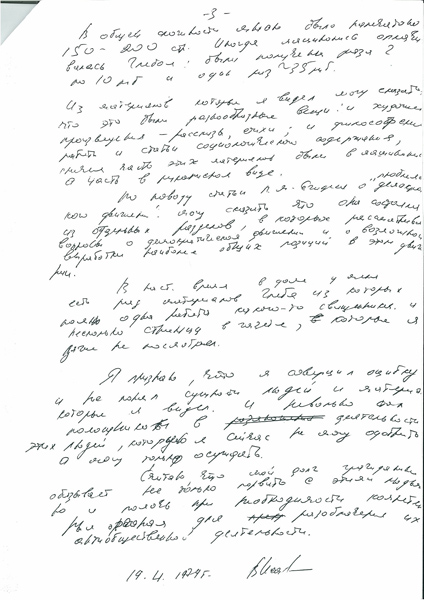 - 3 -
В общей сложности мною было напечатано
150-200 ст. Иногда машинопись
Глебом: были получены раза 2
по 10 руб и один раз 35 руб.
Из материалов которые я видел могу сказать
что это были разнообразные вещи: и художест
произведения - рассказы, стихи; и философские
работы и статьи социологического содержания,
причем часть этих материалов были в машинописи
а часть в рукописном виде.
По поводу статьи
ком движении" могу сказать что она состояла
из отдельных разделов, в которых рассматрив
вопросы о демократическом движении и о возможной
выработке наиболее общих позиций в этом дви
жении.
В наст. время в доме у меня
есть ряд материалов Глеба из которых
помню одна работа какого-то священника и
несколько страниц в папке, в которые я
даже не посмотрел.
Я признаю, что я совершил ошибку
и не понял сущности людей и материала
которые я видел. и невольно был
в деятельности
этих людей, которую я сейчас не могу одобрить
а могу только осудить.
Считаю что мой долг гражданина
обязывает не только порвать с этими людьми
но и помочь при необходимости
для разоблачения их
антиобщественной деятельности.
19.4.1974 г.